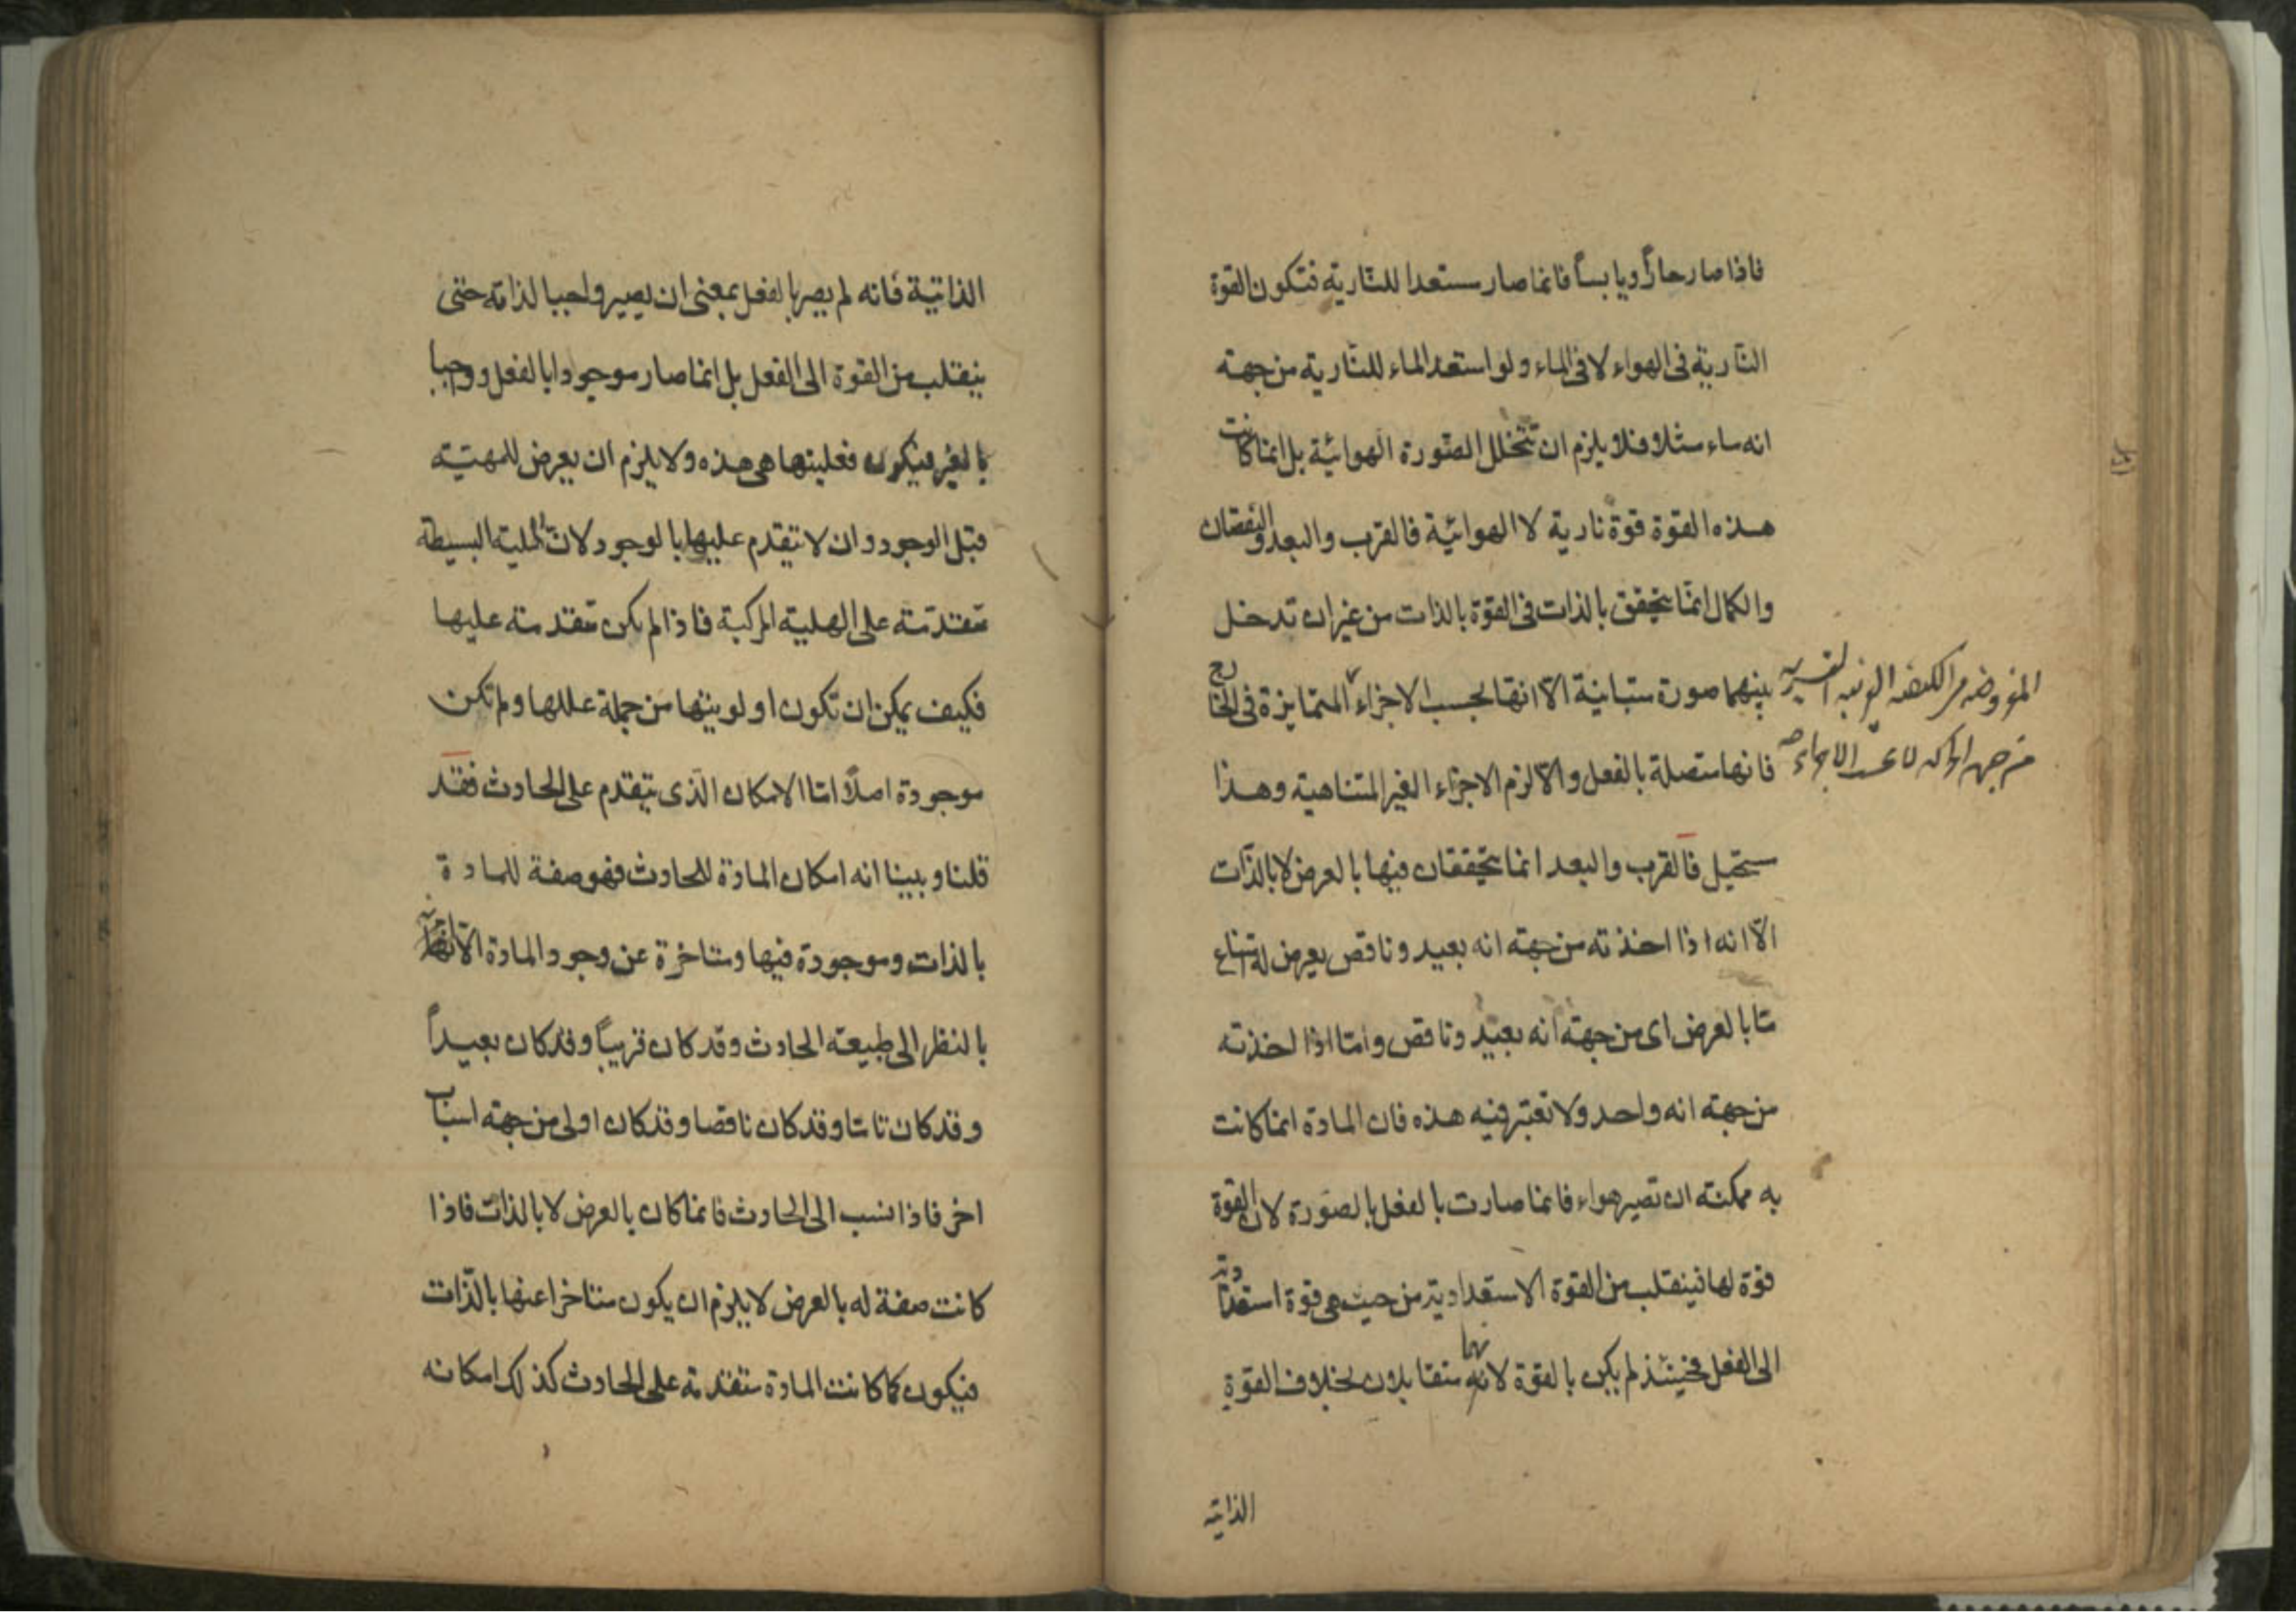 فاذا صار حاراً ويابساً فانما صار مستعدا للنارية فتكون القوة
النارية فى الهواء لا فى الماء ولو استعد الماء للنارية من جهته
انه ماء مثلا فلا يلزم ان تتخلل الصورة الهوائية بل انما كانت
هذه القوة قوة نارية لا الهوائية فالقرب والبعد والنقصان
والكمال انما يتحقق بالذات فى القوة بالذات من غير ان تدخل
بينهما صورة متباينة الّا انها بحسب الاجزاء المتمايزة فى الخارج
فانها متصلة بالفعل والّا لزم الاجزاء الغير المتناهية وهذا
مستحيل فالقرب والبعد انما يتحققان فيها بالعرض لا بالذات
الّا انه اذا اخذته من جهته انه بعيد وناقص يعرض له امتناع
ما بالعرض اى من جهته انه بعيد وناقص واما اذا اخذته
من جهته انه واحد ولا تعتبر فيه هذه فان المادة انما كانت
به ممكنته ان تصير هواء فانما صارت بالفعل بالصورة لان القوة
قوة لها فينقلب من القوة الاستعدادية من حيث هى قوة استعدادية
الى الفعل فحينئذ لم يكن بالقوة لانهما متقابلان بخلاف القوة
الذاتية
المفروضه من
من جهه الحركه لا بحسب الاجزاء صح
الذاتية فانه لم يصر بالفعل بمعنى ان يصير واجبا لذاته حتى
ينقلب من القوة الى الفعل بل انما صار موجودا بالفعل وواجبا
بالغير فيكون فعليتها هى هذه ولا يلزم ان يعرض للمهيته
قبل الوجود وان لا تتقدم عليها بالوجود لان الهلية البسيطة
متقدمته على الهلية المركبة فاذا لم يكن متقدمته عليها
فكيف يمكن ان تكون اولويتها من جملة عللها ولم تكن
موجودة اصلاً اما الامكان الذى يتقدم على الحادث فقد
قلنا وبينا انه امكان المادة للحادث فهو صفة للمادة
بالذات وموجودة فيها ومتاخرة عن وجود المادة الّا انها
بالنظر الى طبيعته الحادث وقد كان قريباً وقد كان بعيداً
وقد كان تاما وقد كان ناقصا وقد كان اولى من جهته اسباب
اخر فاذا نسب الى الحادث فانما كان بالعرض لا بالذات فاذا
كانت صفة له بالعرض لا يلزم ان يكون متاخرا عنها بالذات
فيكون كما كانت المادة متقدمة على الحادث كذلك امكانه